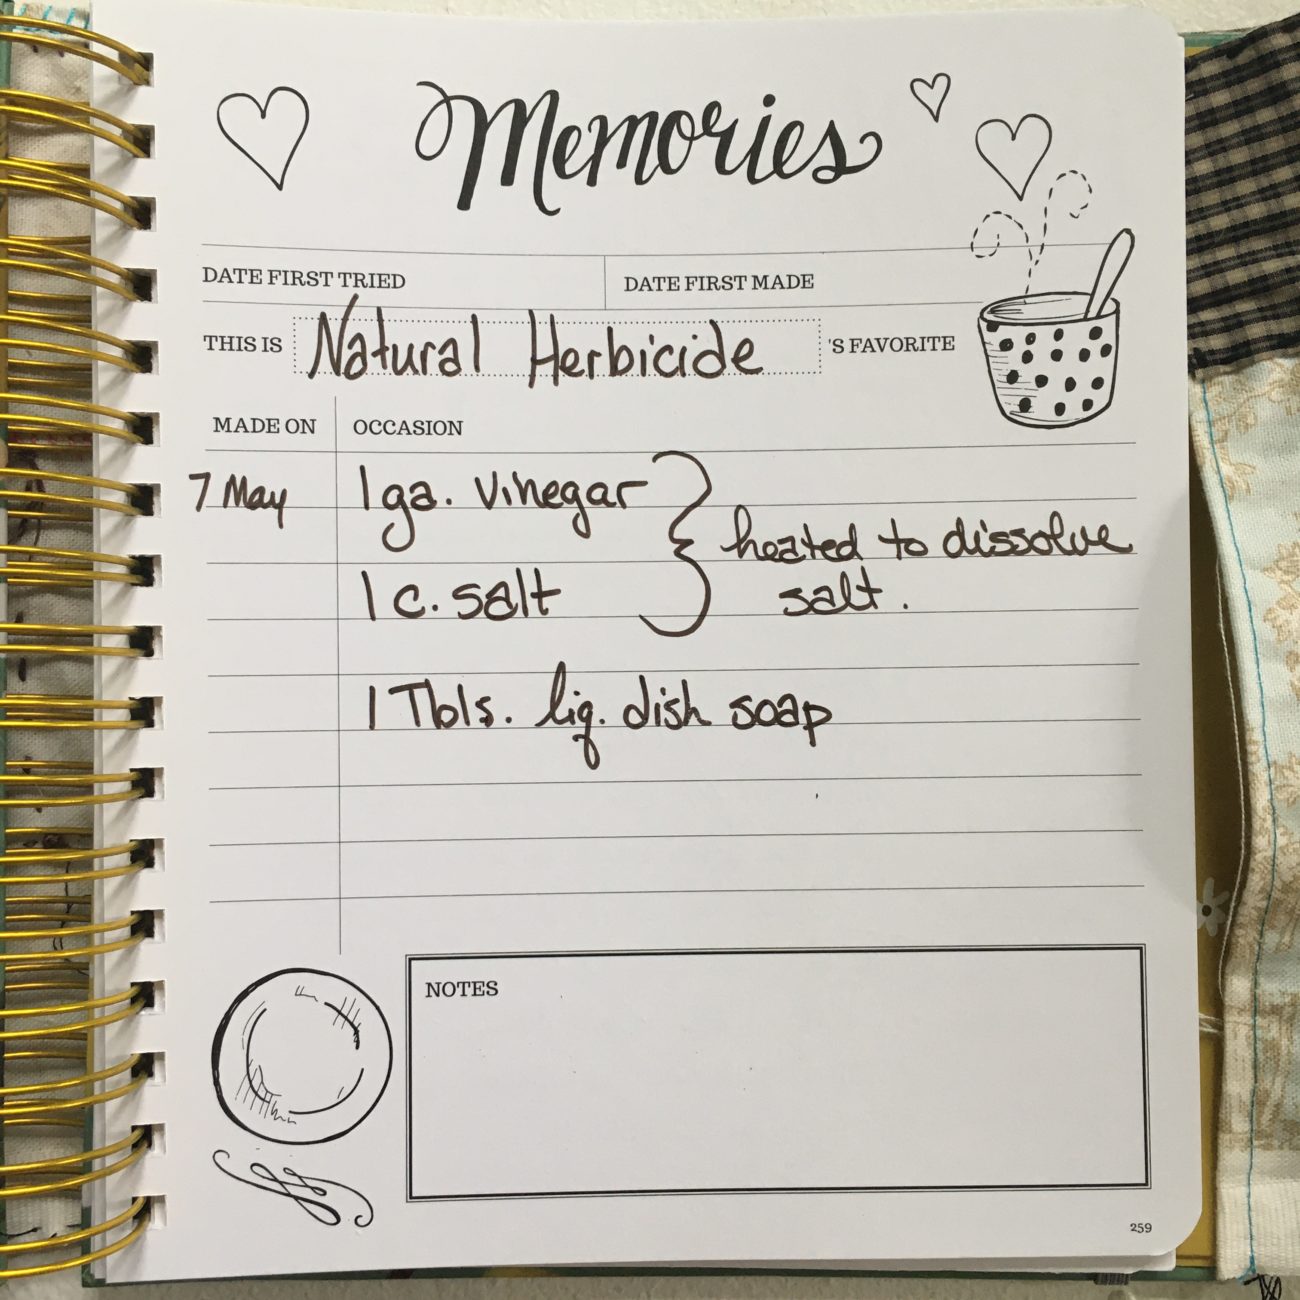 Memories
DATE FIRST TRIED
DATE FIRST MADE
THIS IS Natural Herbicide 'S FAVORITE
MADE ON
OCCASION
7 May
1 ga. vinegar
heated to dissolve
salt.
1 c. salt
1 Tbls. liq. dish soap
NOTES
259